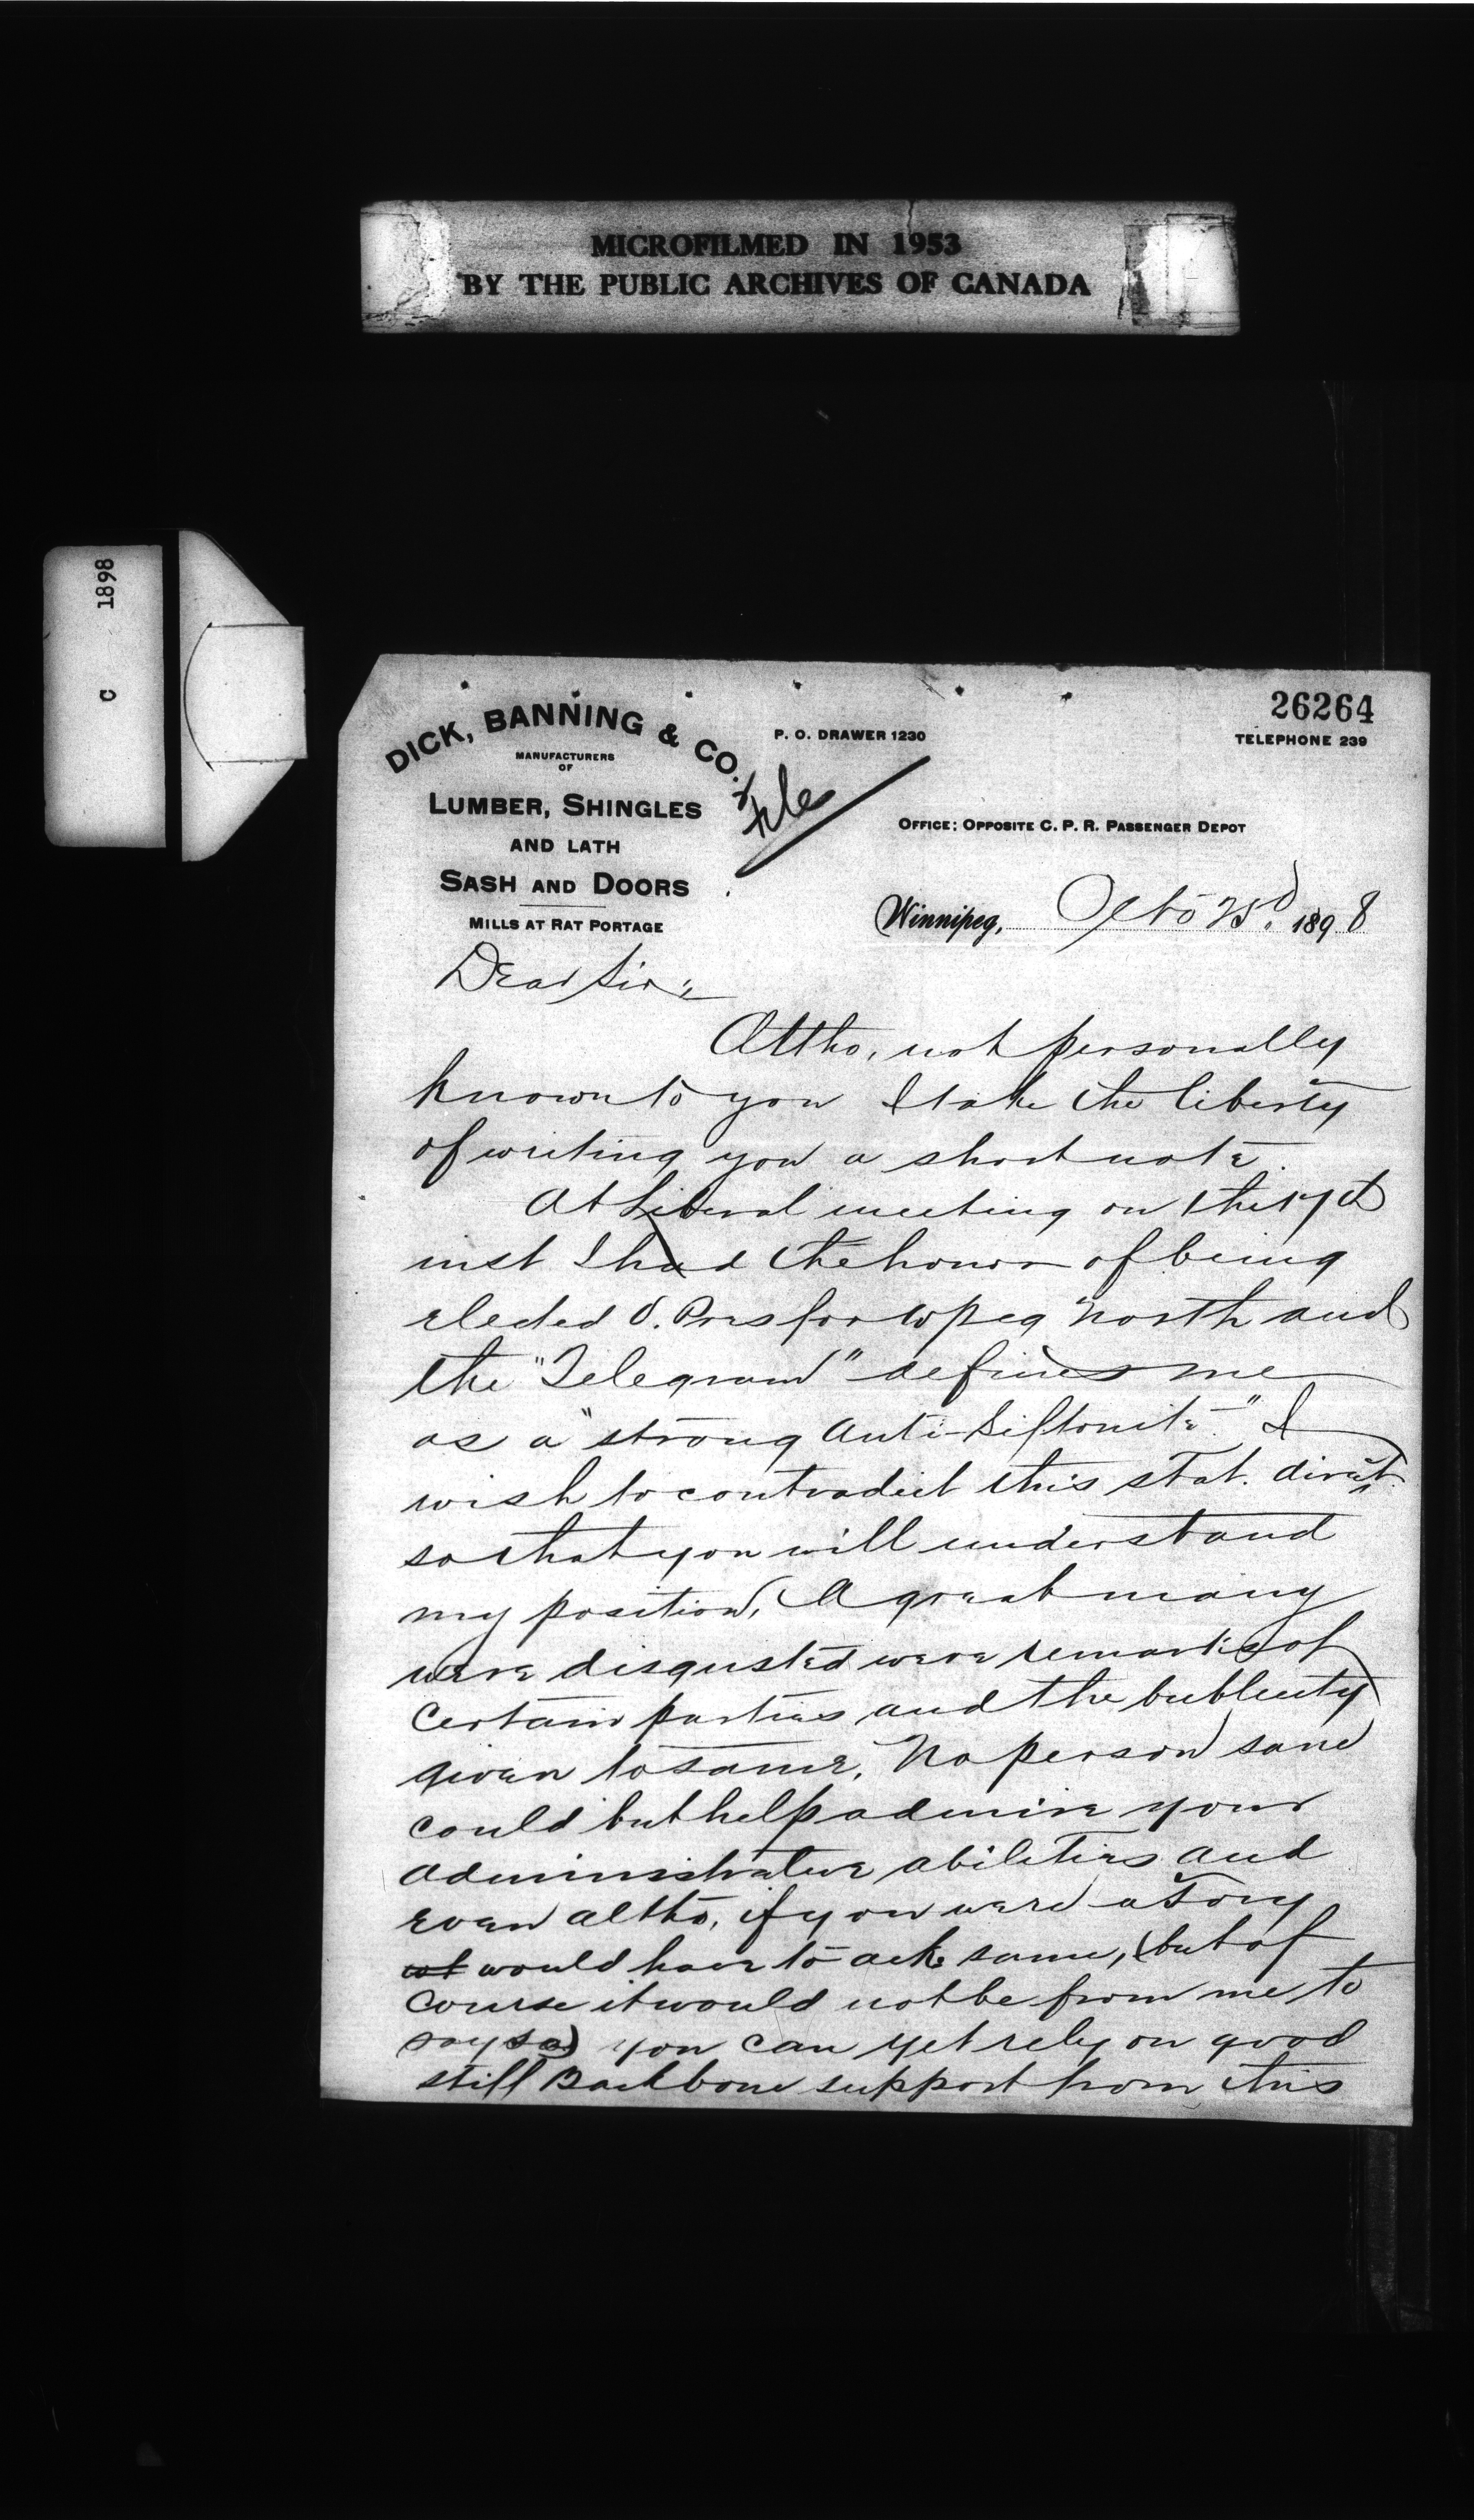 MICROFILMED IN 1953
BY THE PUBLIC ARCHIVES OF CANADA
C 1898
26264
DICK, BANNING & CO.,
MANUFACTURERS
OF
LUMBER, SHINGLES
AND LATH
SASH AND DOORS
MILLS AT RAT PORTAGE
P. O. DRAWER 1230
TELEPHONE 239
File
OFFICE: OPPOSITE C. P. R. PASSENGER DEPOT
Winnipeg, Octo 25d. 1898
Dear Sir:
Altho, not personally
known to you I take the liberty
of writing you a short note.
At Liberal meeting on the 17th
inst I had the honor of being
elected V. Pres for Wpeg North and
the "Telegram" defines me
as a "strong Anti-Siftonite." I
wish to contradict this stat. direct.
so that you will understand
my position, A great many
were disgusted were remarks of
certain parties and the
given to same. No person sane
could but help admire your
administrative abilities and
even altho, if you were a Tory
would have to ack. same, (but of
course it would not be from me to
say so) you can yet rely on good
still Backbone support from this